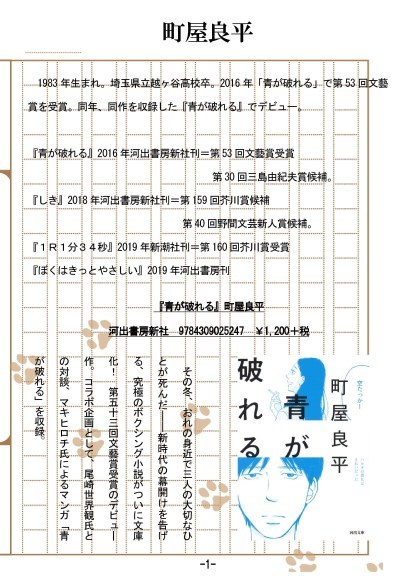 町屋良平
1983 年生まれ。埼玉県立越ヶ谷高校卒。2016 年「青が破れる」で第 53 回文藝
賞を受賞。同年、同作を収録した『青が破れる』でデビュー。
『青が破れる』2016 年河出書房新社刊＝第 53 回文藝賞受賞
第 30 回三島由紀夫賞候補。
『しき』2018 年河出書房新社刊＝第 159 回芥川賞候補
第 40 回野間文芸新人賞候補。
『１Ｒ１分３４秒』2019 年新潮社刊＝第 160 回芥川賞受賞
『ぼくはきっとやさしい』2019 年河出書房刊
『青が破れる』町屋良平
河出書房新社　9784309025247　￥1,200＋税
その冬、おれの身近で三人の大切なひ
とが死んだ――新時代の幕開けを告げ
る、究極のボクシング小説がついに文庫
化！　第五十三回文藝賞受賞のデビュー
作。コラボ企画として、尾崎世界観氏と
の対談、マキヒロチ氏によるマンガ「青
が破れる」を収録。
町屋良平
青が
破れる
河出文庫
-1-